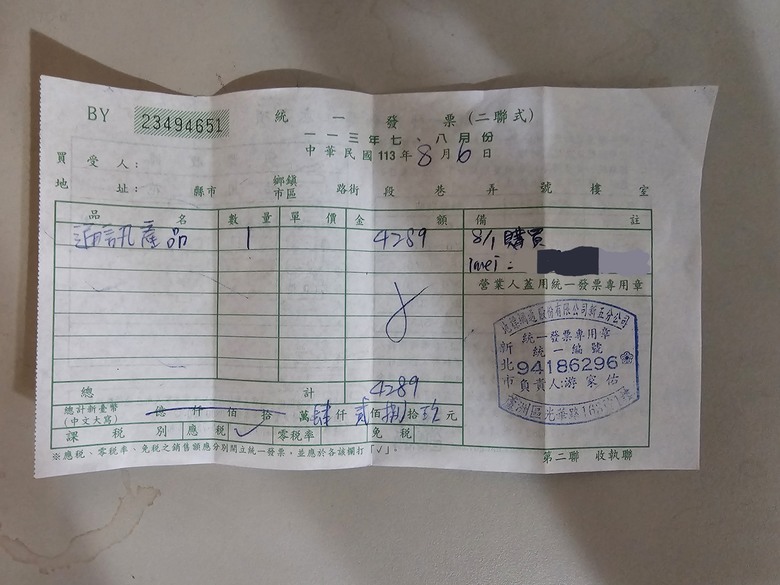 BY 23494651 統一發票(二聯式)
一一三年七、八月份
中華民國113年8月6日
買受人:
地址: 縣市 鄉鎮市區 路街 段 巷 弄 號 樓 室
品名 數量 單價 金額 備註
通訊產品 1 4289 8/1 購買
Imei:
營業人蓋用統一發票專用章
股份有限公司新五分公司
統一發票專用章
新北市
統一編號
94186296
負責人:游家佑
蘆洲區光華路
總計 4289
總計新臺幣(中文大寫) 億仟佰拾萬肆仟貳佰捌拾玖元
課稅別 應稅 ✓ 零稅率 免稅
※應稅、零稅率、免稅之銷售額應分別開立統一發票,並應於各該欄打「✓」。
第二聯 收執聯